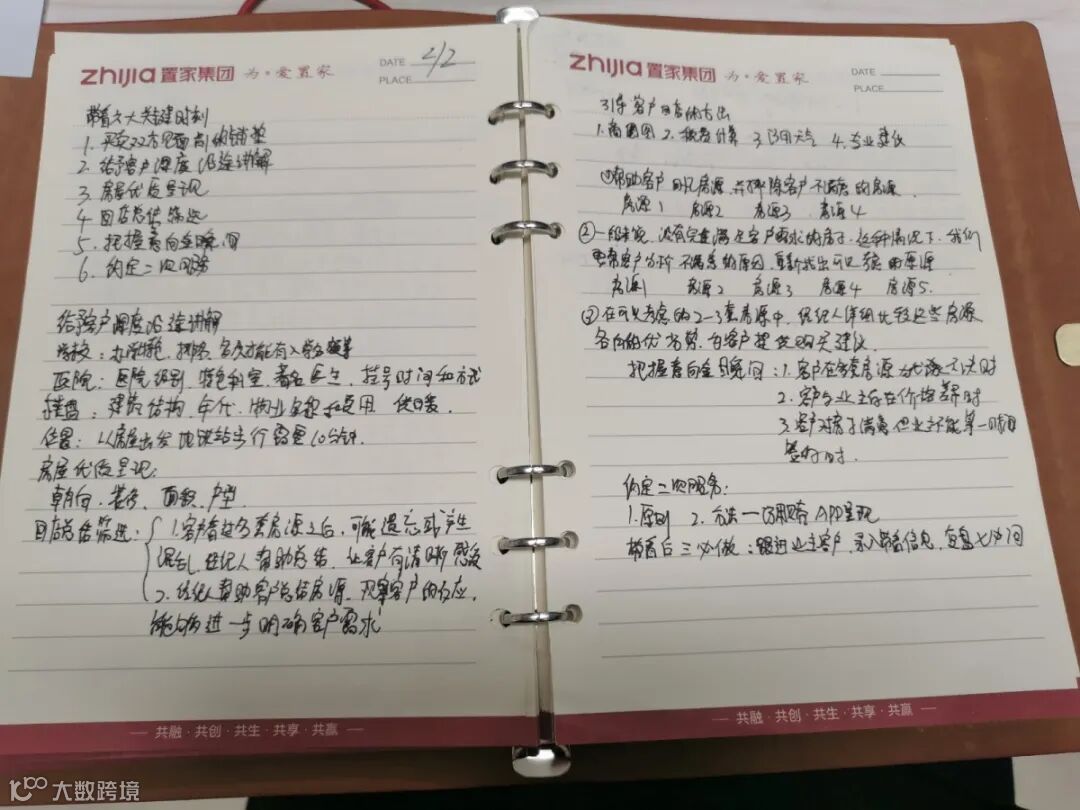 zhijia 置家集团 为·爱置家
DATE 2/2
PLACE
带看六大关键时刻
1. 买卖双方见面前的铺垫
2. 给予客户深度沿途讲解
3. 房屋优质呈现
4 回店总结筛选
5. 把握意向金瞬间
6. 约定二次服务
给予客户深度沿途讲解
学校:
医院:医院级别、特色科室、著名医生、挂号时间和方式
楼盘:建筑结构、年代、物业
位置:从房屋出发地铁站步行需要10分钟.
房屋优质呈现:
朝向、装修、面积、户型
回店总结筛选: 1.客户看过多套房源之后,可能遗忘或产生
混乱,经纪人帮助总结,让客户有清晰
2. 经纪人帮助客户总结房源,观察客户的反应,
能够进一步明确客户需求
共融·共创·共生·共享·共赢
zhijia 置家集团 为·爱置家
DATE
PLACE
引导客户回店的方法
1.商圈图 2.税费计算 3. 4.专业建议
①帮助客户回忆房源,并排除客户不满意的房源
房源1 房源2 房源3 房源4
②一般来说,没有完全满足客户需求的房子,这种情况下,我们
要帮客户分析不满意的原因,重新找出可以考虑的房源
房源1 房源2 房源3 房源4 房源5.
③在可以考虑的2-3套房源中,经纪人详细比较这些房源
各自的优劣势,为客户提供购买建议.
把握意向金瞬间:1.客户在多套房源 犹豫不决时
2.客户与业主存在价格差异时
3.客户对房子满意但业主不能第一时间
签约时.
约定二次服务:
1.原则 2.方法— APP呈现
带看后三必做:跟进业主客户,录入带看信息,复盘七必问
共融·共创·共生·共享·共赢
大数跨境